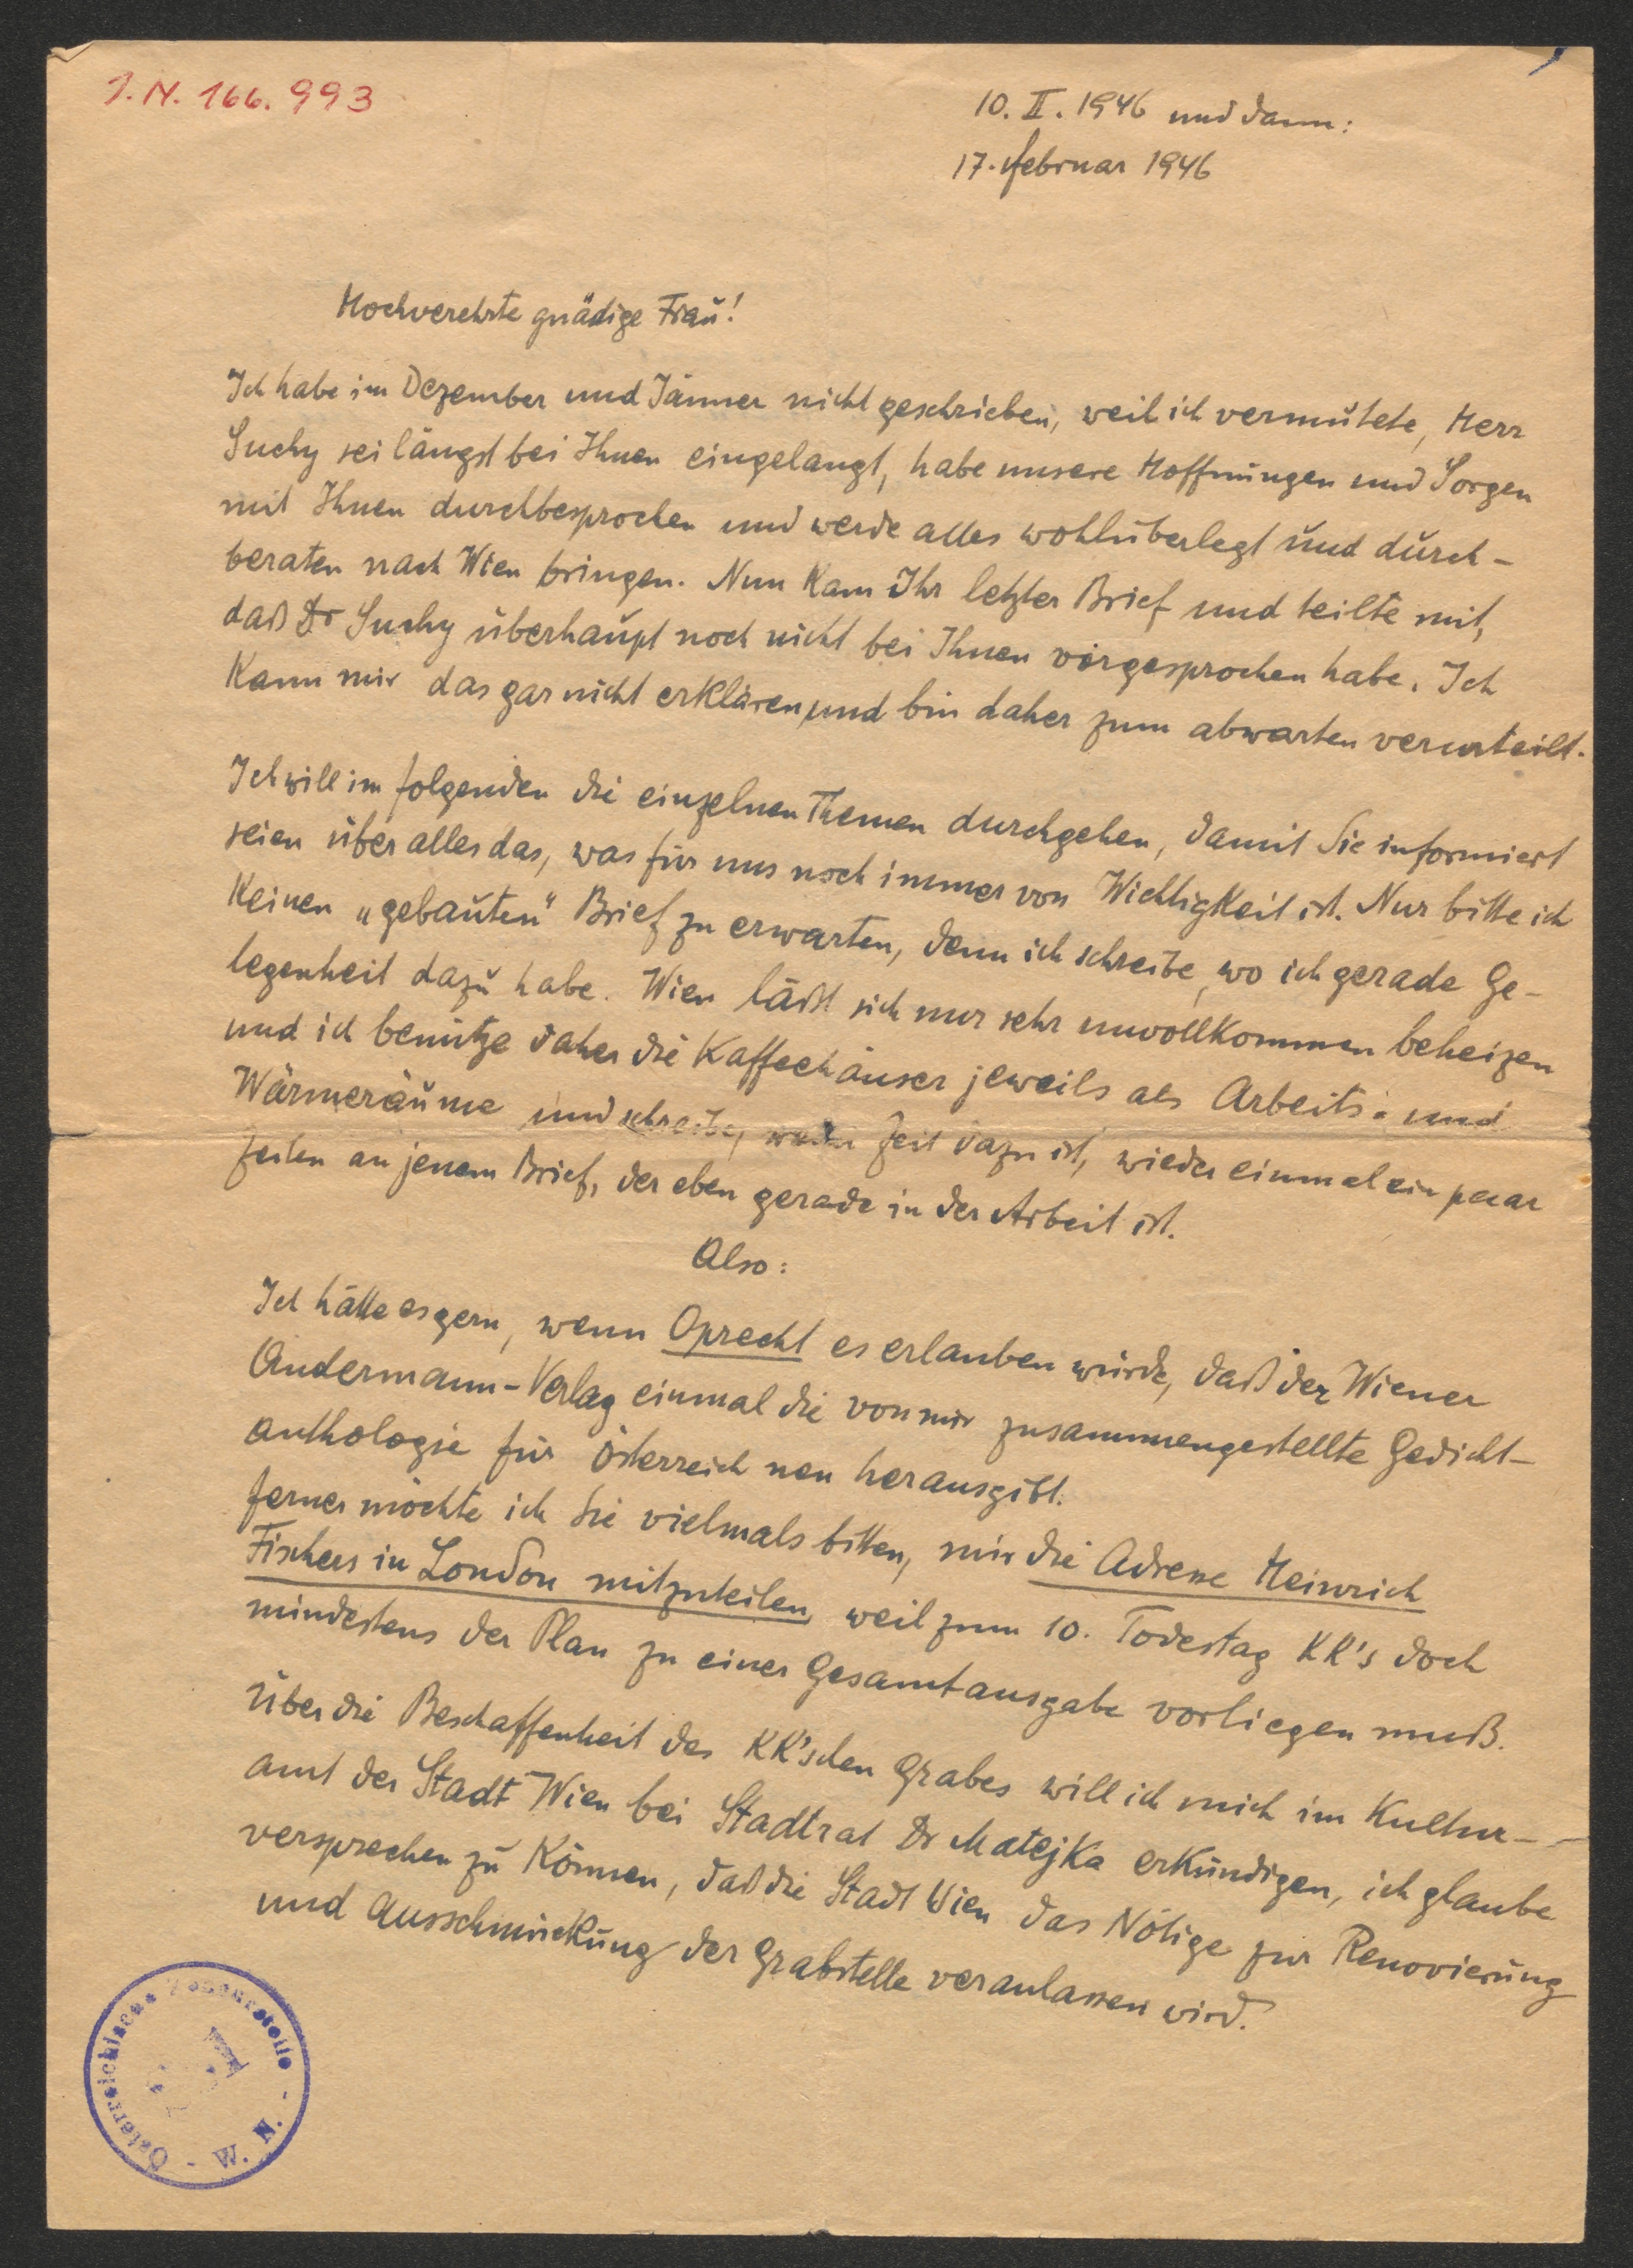 J.N. 166.993
10. II. 1946 und dann:
17. Februar 1946
Hochverehrte gnädige Frau!
Ich habe im Dezember und Jänner nicht geschrieben, weil ich vermutete, Herr
Suchy sei längst bei Ihnen eingelangt, habe unsere Hoffnungen und Sorgen
mit Ihnen durchbesprochen und werde alles wohlüberlegt und durch-
beraten nach Wien bringen. Nun kam Ihr letzter Brief und teilte mit,
daß Dr Suchy überhaupt noch nicht bei Ihnen vorgesprochen habe. Ich
kann mir das gar nicht erklären und bin daher zum abwarten verurteilt.
Ich will im folgenden die einzelnen Themen durchgehen, damit Sie informiert
seien über alles das, was für uns noch immer von Wichtigkeit ist. Nur bitte ich
keinen „gebauten" Brief zu erwarten, denn ich schreibe, wo ich gerade Ge-
legenheit dazu habe. Wien läßt sich nur sehr unvollkommen beheizen
und ich benütze daher die Kaffeehäuser jeweils als Arbeits- und
Wärmeräume und schreibe, wenn Zeit dazu ist, wieder einmal ein paar
Zeilen an jenem Brief, der eben gerade in der Arbeit ist.
Also:
Ich hätte es gern, wenn Oprecht es erlauben würde, daß der Wiener
Andermann-Verlag einmal die von mir zusammengestellte Gedicht-
anthologie für Österreich neu herausgibt.
Ferner möchte ich Sie vielmals bitten, mir die Adresse Heinrich
Fischers in London mitzuteilen, weil zum 10. Todestag KK's doch
mindestens der Plan zu einer Gesamtausgabe vorliegen muß.
Über die Beschaffenheit des KK'schen Grabes will ich mich im Kultur-
amt der Stadt Wien bei Stadtrat Dr Matejka erkundigen, ich glaube
versprechen zu können, daß die Stadt Wien das Nötige zur Renovierung
und Ausschmückung der Grabstelle veranlassen wird.
Österreichische Zensurstelle - W. N. -